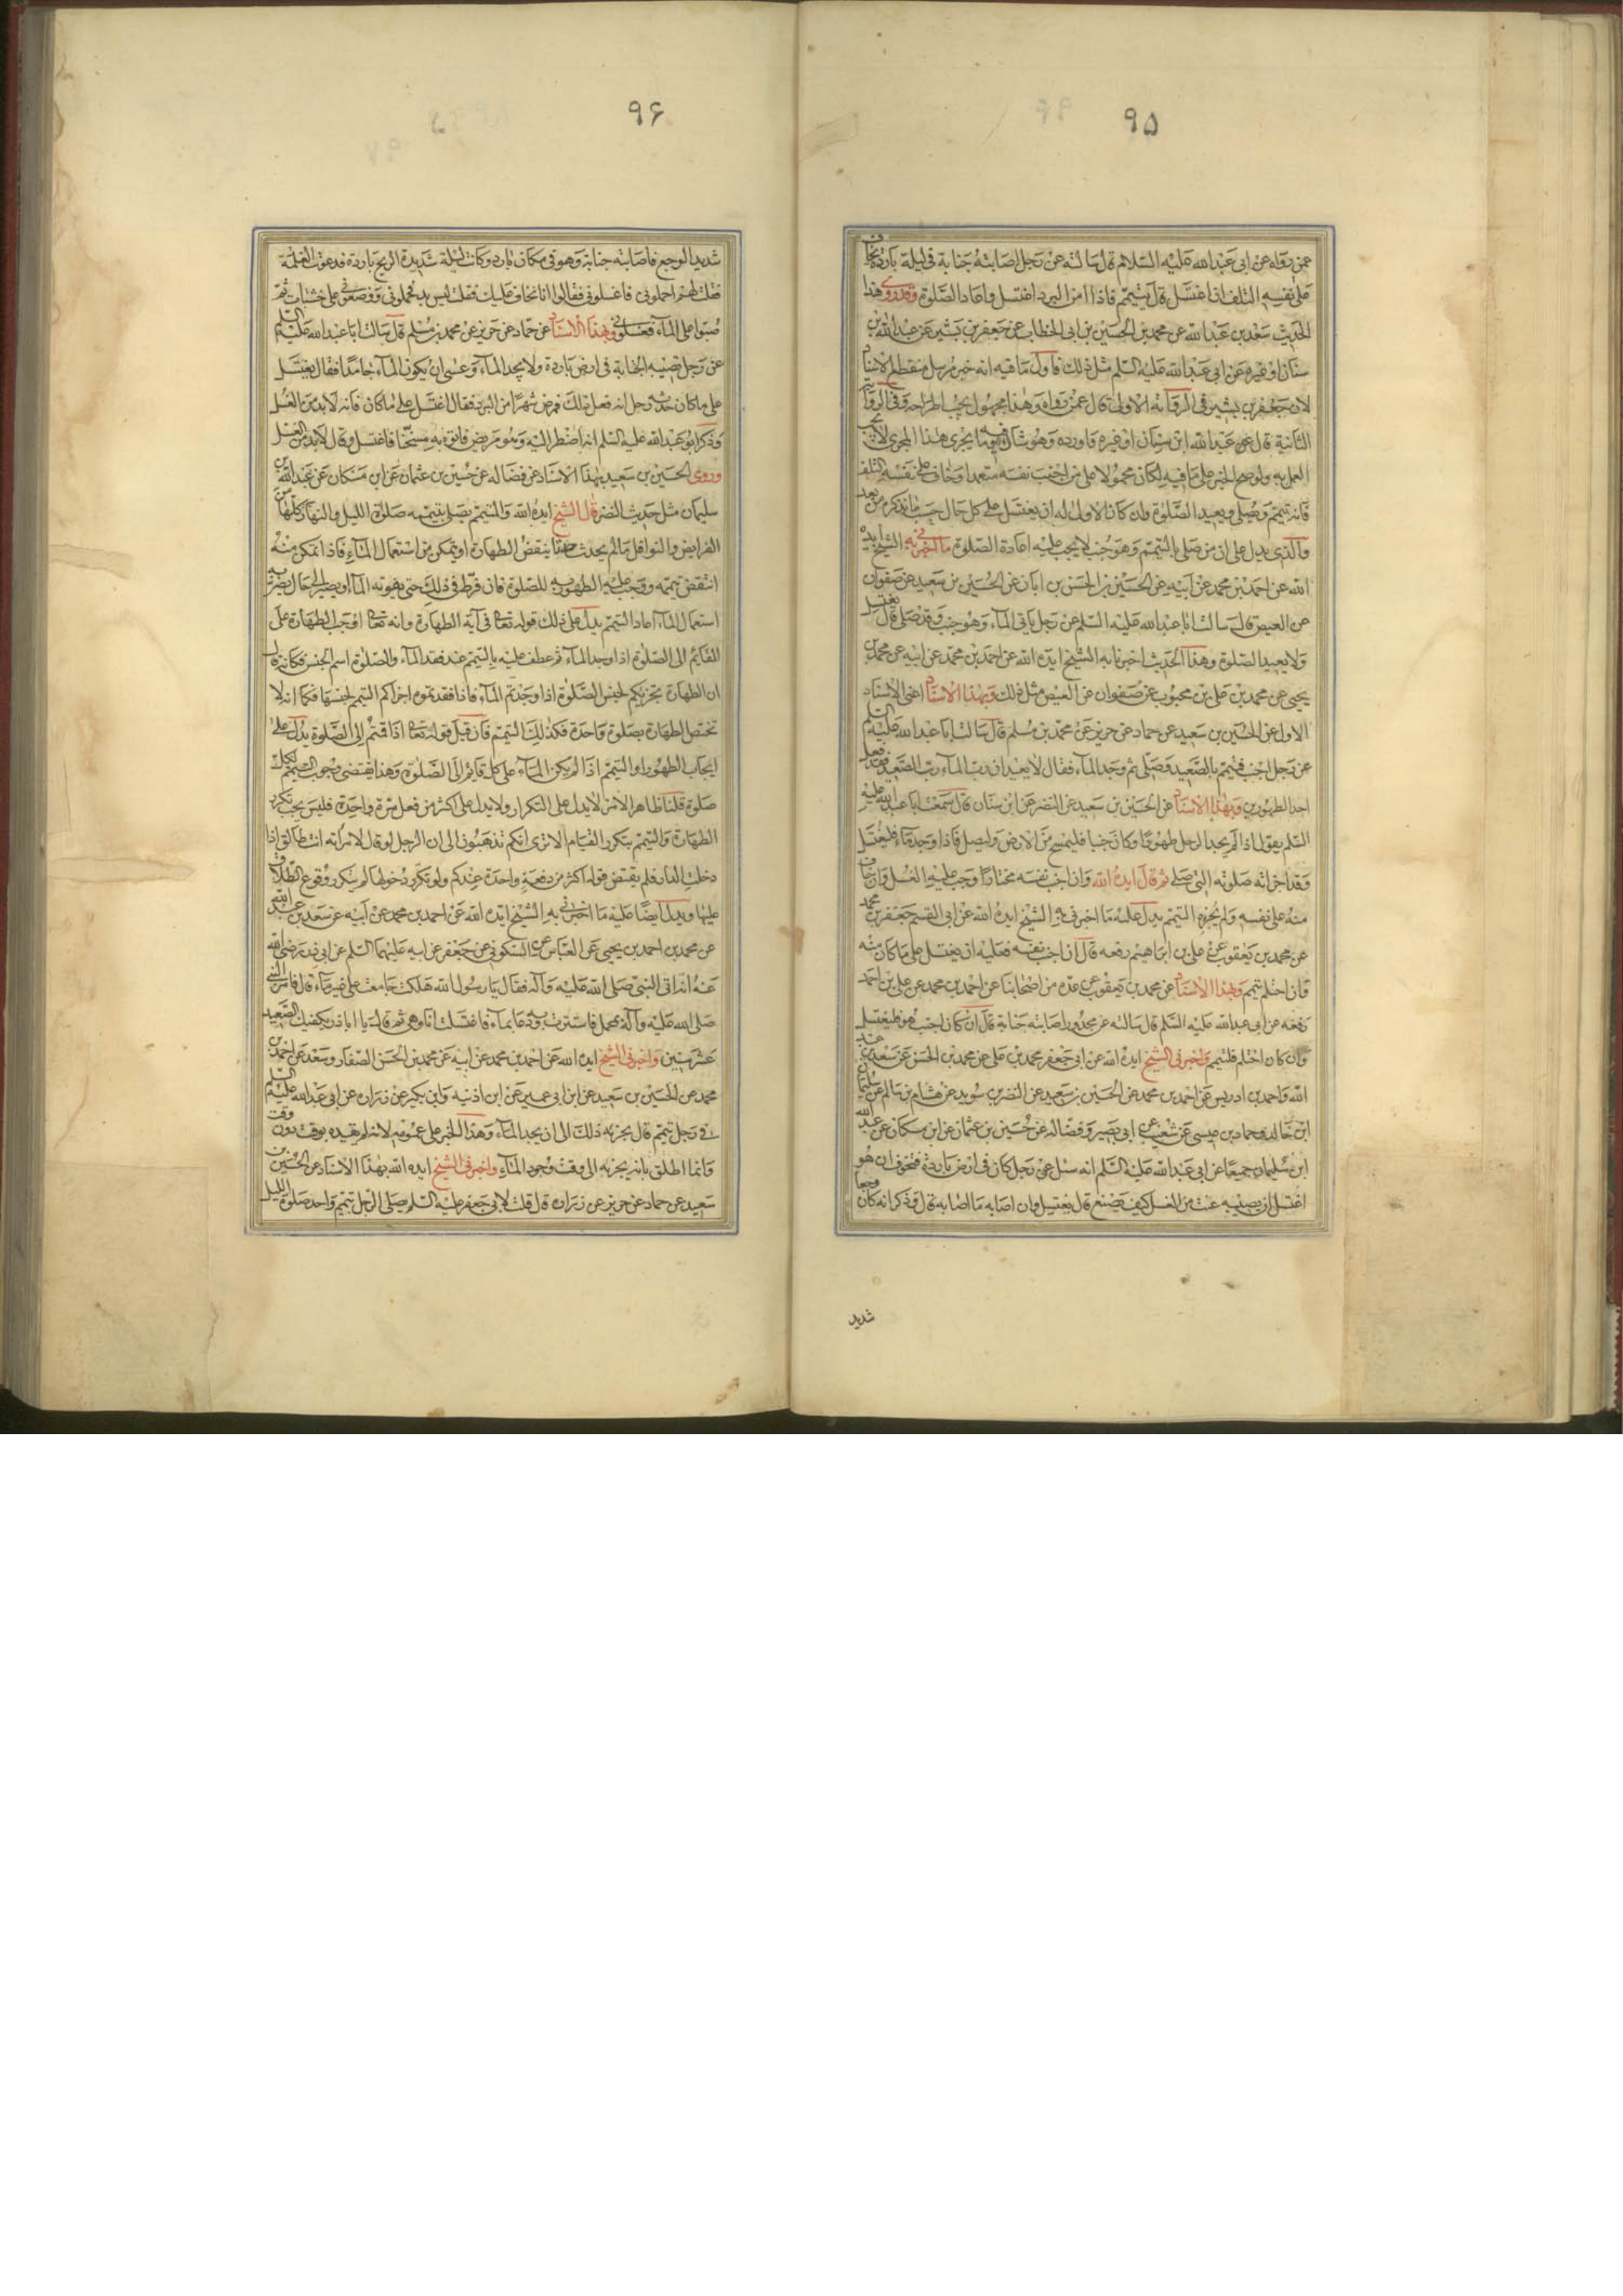 ٩۵
عمن رواه عن ابی عبدالله علیه السلام قال سالته عن رجل اصابته جنابة فی لیلة باردة یخاف
علی نفسه التلف ان اغتسل قال یتیمم فاذا امن البرد اغتسل واعاد الصلوة وقد روی هذا
الحدیث سعد بن عبد الله عن محمد بن الحسین بن ابی الخطاب عن جعفر بن بشیر عن عبد الله بن
سنان او غیره عن ابی عبد الله علیه السلم مثل ذلک فاول ما فیه انه خبر مرسل منقطع الاسناد
لان جعفر بن بشیر فی الروایة الاولی قال عمن رواه وهذا مجهول یجب اطراحه وفی الروایة
الثانیة قال عن عبد الله ابن سنان او غیره فاورده وهو شاک فیه وما یجری هذا المجری لا یجب
العمل به ولو صح الخبر علی ما فیه لکان محمولا علی من اجنب نفسه متعمدا وخاف علی نفسه التلف
فانه یتیمم ویصلی ویعید الصلوة وان کان الاول له ان یغتسل علی کل حال حسب ما نذکره من بعد
والذی یدل علی ان من صلی بالتیمم وهو جنب لا یجب علیه اعادة الصلوة ما اخبرنی به الشیخ ایده
الله عن احمد بن محمد عن ابیه عن الحسین بن الحسن بن ابان عن الحسین بن سعید عن صفوان
عن العیص قال سالت ابا عبدالله علیه السلم عن رجل یاتی الماء وهو جنب وقد صلی قال یغتسل
ولا یعید الصلوة وهذا الحدیث اخبرنا به الشیخ ایده الله عن احمد بن محمد عن ابیه عن محمد بن
یحیی عن محمد بن علی بن محبوب عن صفوان عن العیص مثل ذلک وبهذا الاسناد اعنی الاسناد
الاول عن الحسین بن سعید عن حماد عن حریز عن محمد بن مسلم قال سالت ابا عبد الله علیه السلم
عن رجل اجنب فتیمم بالصعید وصلی ثم وجد الماء فقال لا یعید ان رب الماء رب الصعید فقد فعل
احد الطهورین وبهذا الاسناد عن الحسین بن سعید عن النضر عن ابن سنان قال سمعت ابا عبد الله علیه
السلم یقول اذا لم یجد الرجل طهورا وکان جنبا فلیمسح من الارض ولیصل فاذا وجد ماء فلیغتسل
وقد اجزاته صلوته التی صلی ثم قال ایده الله وان اجنب نفسه مختارا وجب علیه الغسل وان خاف
منه علی نفسه ولم یجزه التیمم یدل علیه ما اخبرنی به الشیخ ایده الله عن ابی القسم جعفر بن محمد
عن محمد بن یعقوب عن علی بن ابراهیم رفعه قال ان اجنب نفسه فعلیه ان یغتسل علی ما کان منه
وان احتلم تیمم وبهذا الاسناد عن محمد بن یعقوب عن عدة من اصحابنا عن احمد بن محمد عن علی بن احمد
رفعه عن ابی عبدالله علیه السلم قال سالته عن مجدور اصابته جنابة قال ان کان اجنب هو فلیغتسل
وان کان احتلم فلیتیمم واخبرنی الشیخ ایده الله عن ابی جعفر محمد بن علی عن محمد بن الحسن عن سعد بن عبد
الله واحمد بن ادریس عن احمد بن محمد عن الحسین بن سعید عن النضر بن سوید عن هشام بن سالم عن سلیمان
ابن خالد وحماد بن عیسی عن شعیب عن ابی بصیر وفضاله عن حسین بن عثمان عن ابن مسکان عن عبد الله
ابن سلیمان جمیعا عن ابی عبدالله علیه السلم انه سئل عن رجل کان فی ارض باردة فتخوف ان هو
اغتسل ان یصیبه عنت من الغسل کیف یصنع قال یغتسل وان اصابه ما اصابه قال وذکر انه کان وجعا
شدید
٩۶
شدید الوجع فاصابته جنابة وهو فی مکان بارد وکانت لیلة شدیدة الریح باردة فدعوت الغلمة
فقلت لهم احملونی فاغسلونی فقالوا انا نخاف علیک فقلت لیس بد فحملونی ووضعونی علی خشبات ثم
صبوا علی الماء فغسلونی وبهذا الاسناد عن حماد عن حریز عن محمد بن مسلم قال سالت ابا عبدالله علیه السلم
عن رجل تصیبه الجنابة فی ارض باردة ولا یجد الماء وعسی ان یکون الماء جامدا فقال یغتسل
علی ما کان حدثه رجل انه فعل ذلک فمرض شهرا من البرد فقال اغتسل علی ما کان فانه لا بد من الغسل
وذکر ابو عبدالله علیه السلم انه اضطر الیه وهو مریض فاتوه به مسخنا فاغتسل وقال لا بد من الغسل
وروی الحسین بن سعید بهذا الاسناد عن فضاله عن حسین بن عثمان عن ابن مسکان عن عبدالله بن
سلیمان مثل حدیث النضر قال الشیخ ایده الله والمتیمم یصلی بتیممه صلوة اللیل والنهار کلها من
الفرایض والنوافل ما لم یحدث شیئا ینقض الطهارة او یتمکن من استعمال الماء فاذا تمکن منه
انتقض تیممه ووجب علیه الطهور به للصلوة فان فرط فی ذلک حتی یفوته الماء او یصیر الی حال یضر به
استعمال الماء اعاد التیمم یدل علی ذلک قوله تعالی فی آیة الطهارة وانه تعالی اوجب الطهارة علی
القایم الی الصلوة اذا وجد الماء ثم عطف علیه بالتیمم عند فقد الماء والصلوة اسم الجنس فکانه قال
ان الطهارة تجزیکم لجنس الصلوة اذا وجدتم الماء فاذا فقدتموه اجزاکم التیمم لجنسها فکما انه لا
تختص الطهارة بصلوة واحدة فکذلک التیمم فان قیل قوله تعالی اذا قمتم الی الصلوة یدل علی
ایجاب الطهور او التیمم اذا لم یکن الماء علی کل قایم الی الصلوة وهذا یقتضی وجوب التیمم لکل
صلوة قلنا ظاهر الامر لا یدل علی التکرار ولا یدل علی اکثر من فعل مرة واحدة فلیس یجب تکرر
الطهارة والتیمم بتکرر القیام الا تری انکم تذهبون الی ان الرجل لو قال لامرأته انت طالق اذا
دخلت الدار فلم یقتض قوله اکثر من دفعة واحدة عندکم ولو تکرر دخولها لم یتکرر وقوع الطلاق
علیها ویدل ایضا علیه ما اخبرنی به الشیخ ایده الله عن احمد بن محمد عن ابیه عن سعد بن عبد الله
عن محمد بن احمد بن یحیی عن العباس عن السکونی عن جعفر عن ابیه علیهما السلم عن ابی ذر رضی الله
عنه انه اتی النبی صلی الله علیه وآله فقال یا رسول الله هلکت جامعت علی غیر ماء قال فامر النبی
صلی الله علیه وآله بمحمل فاستترت به ودعا بماء فاغتسلت انا وهی ثم قال یا اباذر یکفیک الصعید
عشر سنین واخبرنی الشیخ ایده الله عن احمد بن محمد عن ابیه عن محمد بن الحسن الصفار وسعد عن احمد بن
محمد عن الحسین بن سعید عن ابن ابی عمیر عن ابن اذنیه وابن بکیر عن زرارة عن ابی عبدالله علیه السلم
فی رجل تیمم قال یجزیه ذلک الی ان یجد الماء وهذا الخبر علی عمومه لانه لم یقیده بوقت دون وقت
وانما اطلق بانه یجزیه الی وقت وجود الماء واخبرنی الشیخ ایده الله بهذا الاسناد عن الحسین بن
سعید عن حماد عن حریز عن زراره قال قلت لابی جعفر علیه السلم صلی الرجل بتیمم واحد صلوة اللیل